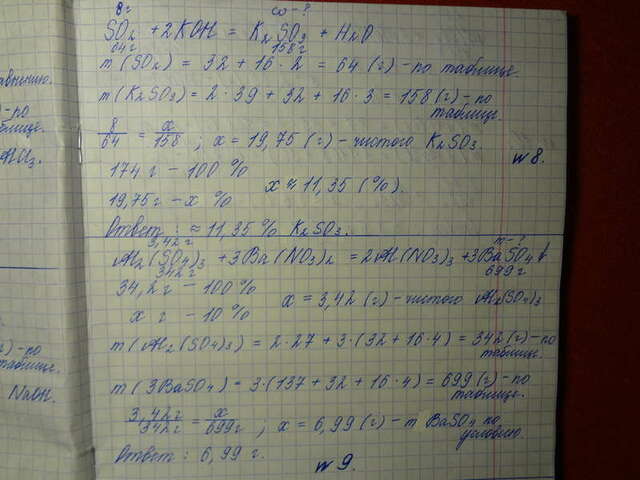 8 г ω-?
SO₂ + 2KOH = K₂SO₃ + H₂O
64г 158г
m (SO₂) = 32 + 16 · 2 = 64 (г) - по таблице.
m (K₂SO₃) = 2 · 39 + 32 + 16 · 3 = 158 (г) - по
таблице.
8/64 = x/158 ; x = 19,75 (г) - чистого K₂SO₃.
w 8.
174 г - 100 %
x ≈ 11,35 (%).
19,75 г - x %
Ответ : ≈ 11,35 % K₂SO₃.
3,42 г m-?
Al₂(SO₄)₃ + 3Ba(NO₃)₂ = 2Al(NO₃)₃ + 3BaSO₄↓
342г 699 г
34,2 г - 100 %
x = 3,42 (г) - чистого Al₂(SO₄)₃
x г - 10 %
m (Al₂(SO₄)₃) = 2 · 27 + 3 · (32 + 16 · 4) = 342 (г) - по
таблице.
m (3BaSO₄) = 3 · (137 + 32 + 16 · 4) = 699 (г) - по
таблице.
3,42 г/342 г = x/699г ; x = 6,99 (г) - m BaSO₄ по
условию.
Ответ : 6,99 г.
w 9.
- по
таблице.
NaOH.